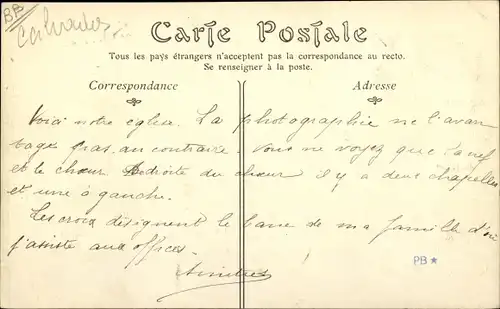 BB
Calvados
Carte Postale
Tous les pays étrangers n'acceptent pas la correspondance au recto.
Se renseigner à la poste.
Correspondance
Adresse
Voici notre église. La photographie ne l'avan
tage pas, au contraire. Vous ne voyez que la nef
et le chœur. A droite du chœur il y a deux chapelles
et une à gauche.
Les croix désignent le banc de ma famille d'où
j'assiste aux offices.
PB★